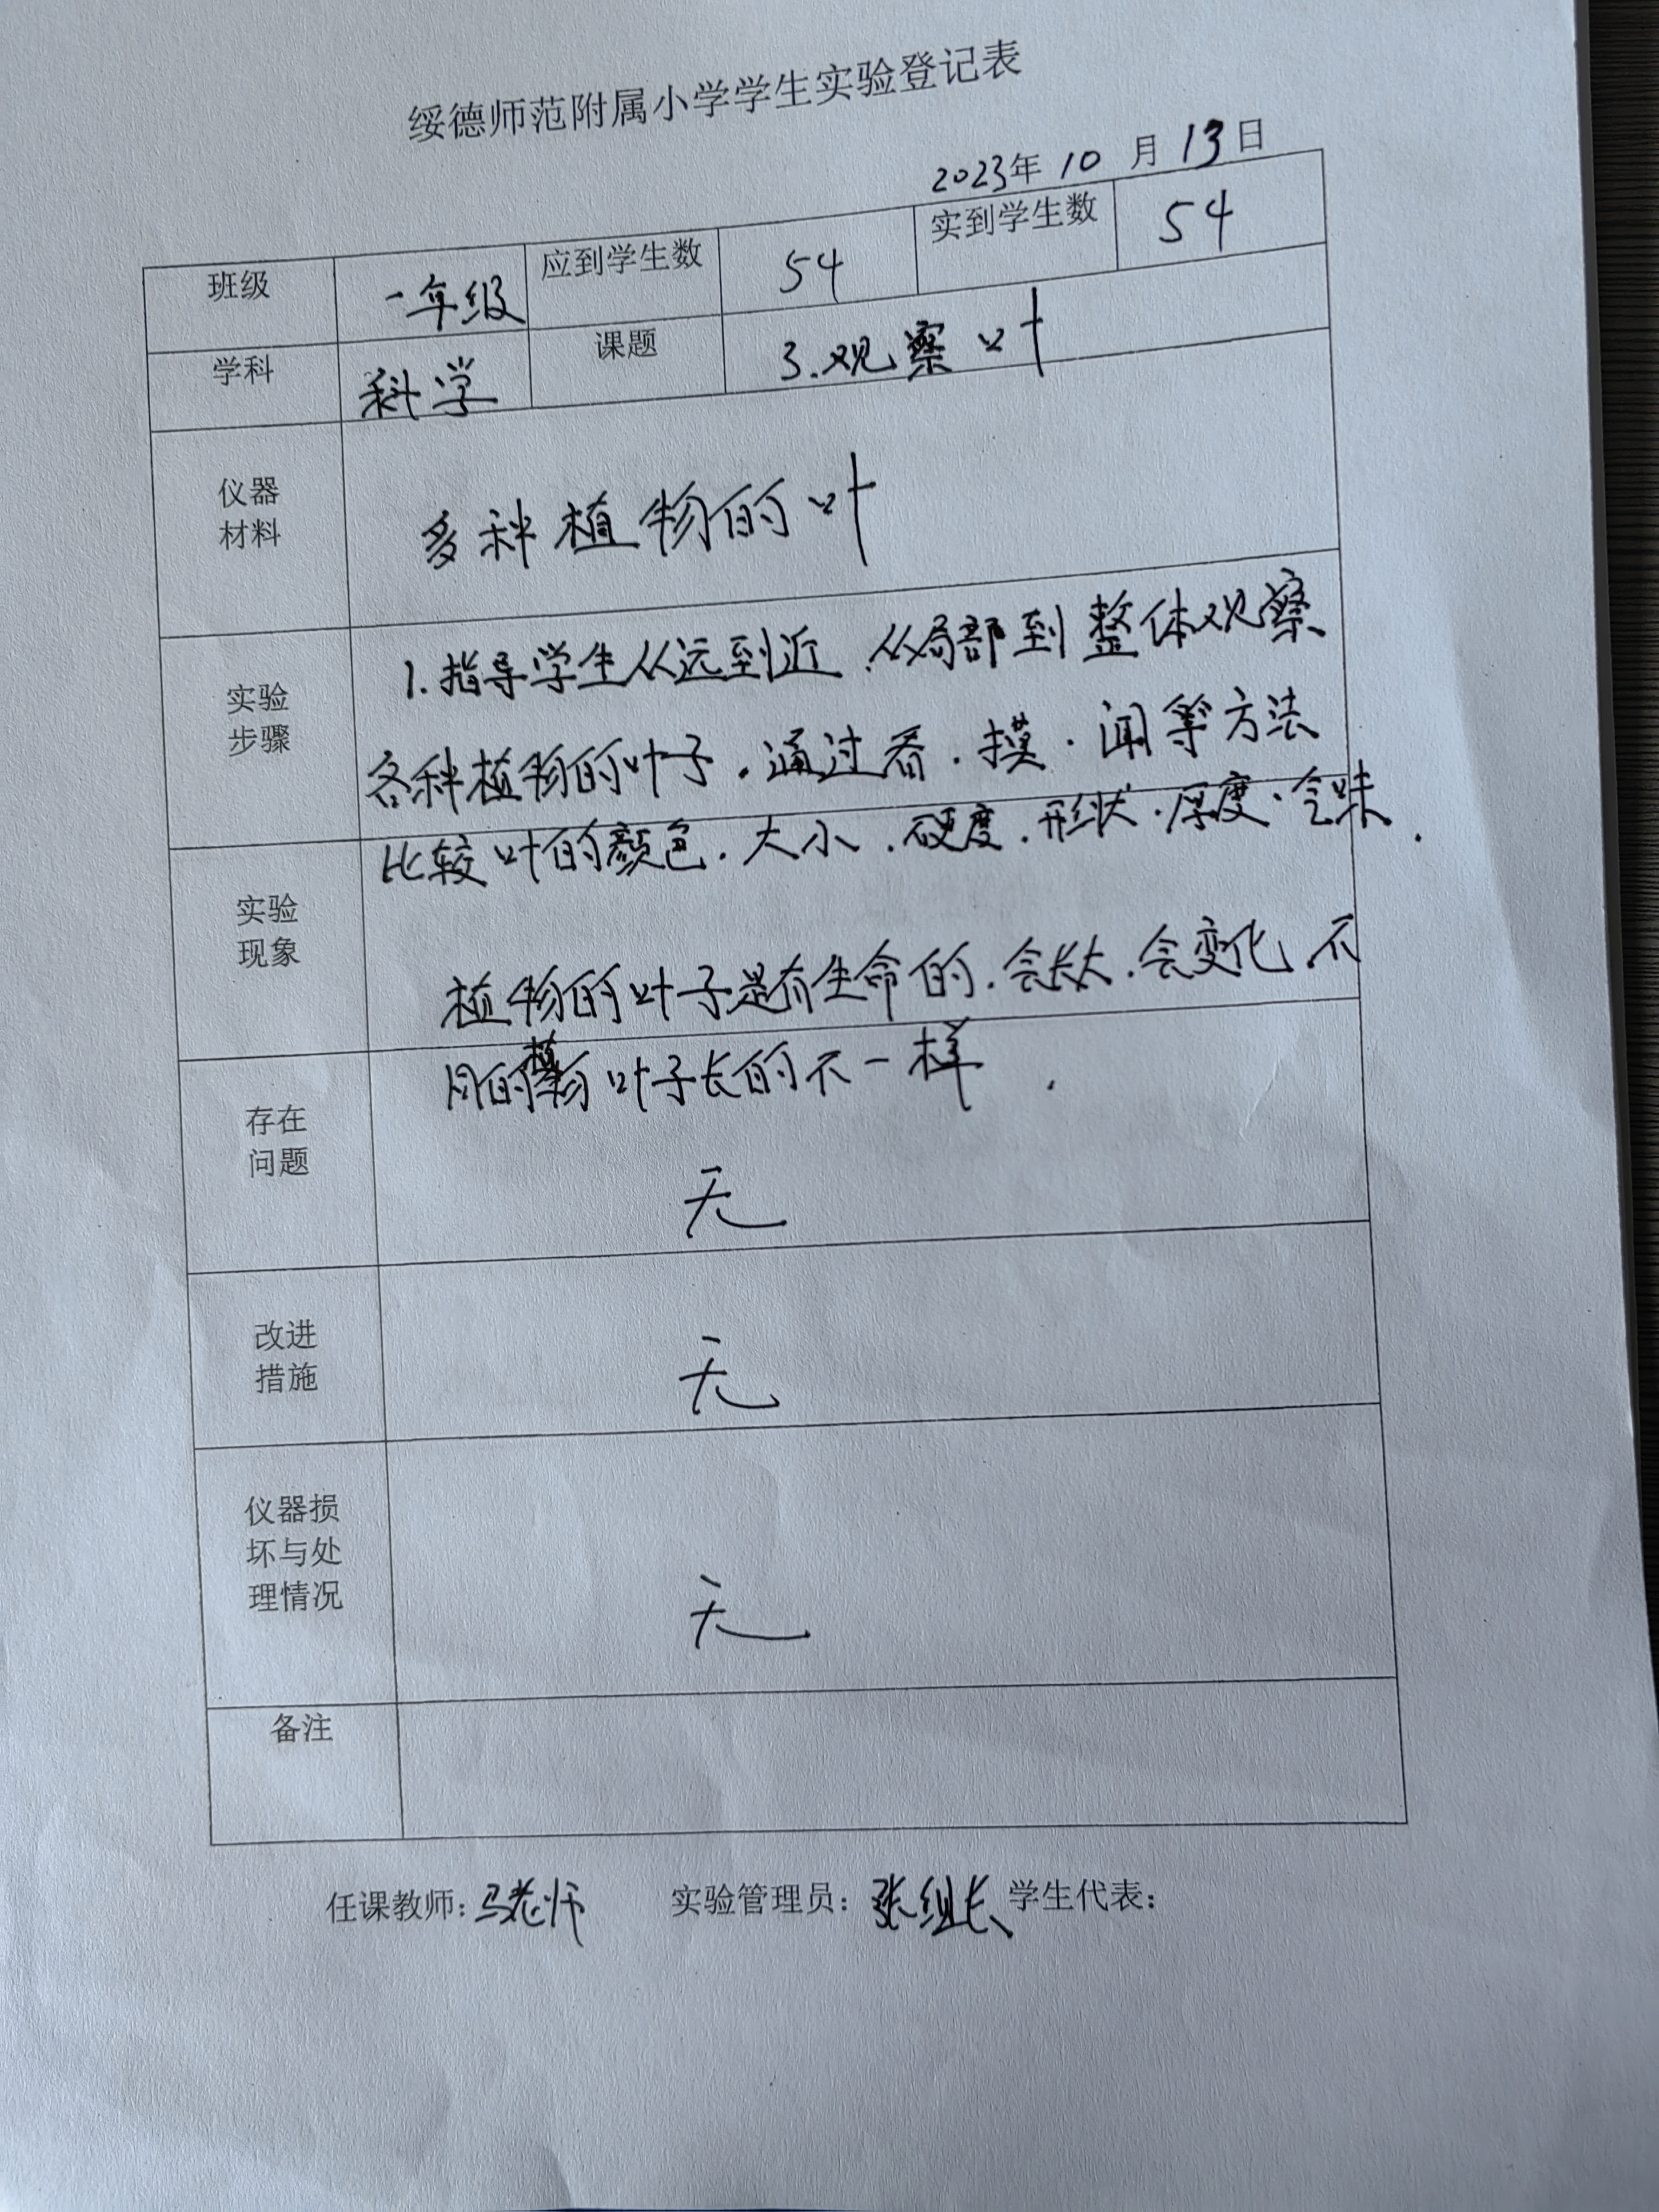 绥德师范附属小学学生实验登记表
2023年 10 月 13 日
班级 一年级 应到学生数 54 实到学生数 54
学科 科学 课题 3.观察叶
仪器
材料
多种植物的叶
实验
步骤
1.指导学生从远到近、从局部到整体观察
各种植物的叶子。通过看、摸、闻等方法
比较叶的颜色、大小、硬度、形状、厚度、气味.
实验
现象
植物的叶子是有生命的.会长大.会变化.不
同的植物叶子长的不一样.
存在
问题
无
改进
措施
无
仪器损
坏与处
理情况
无
备注
任课教师:马老师 实验管理员:张组长 学生代表: